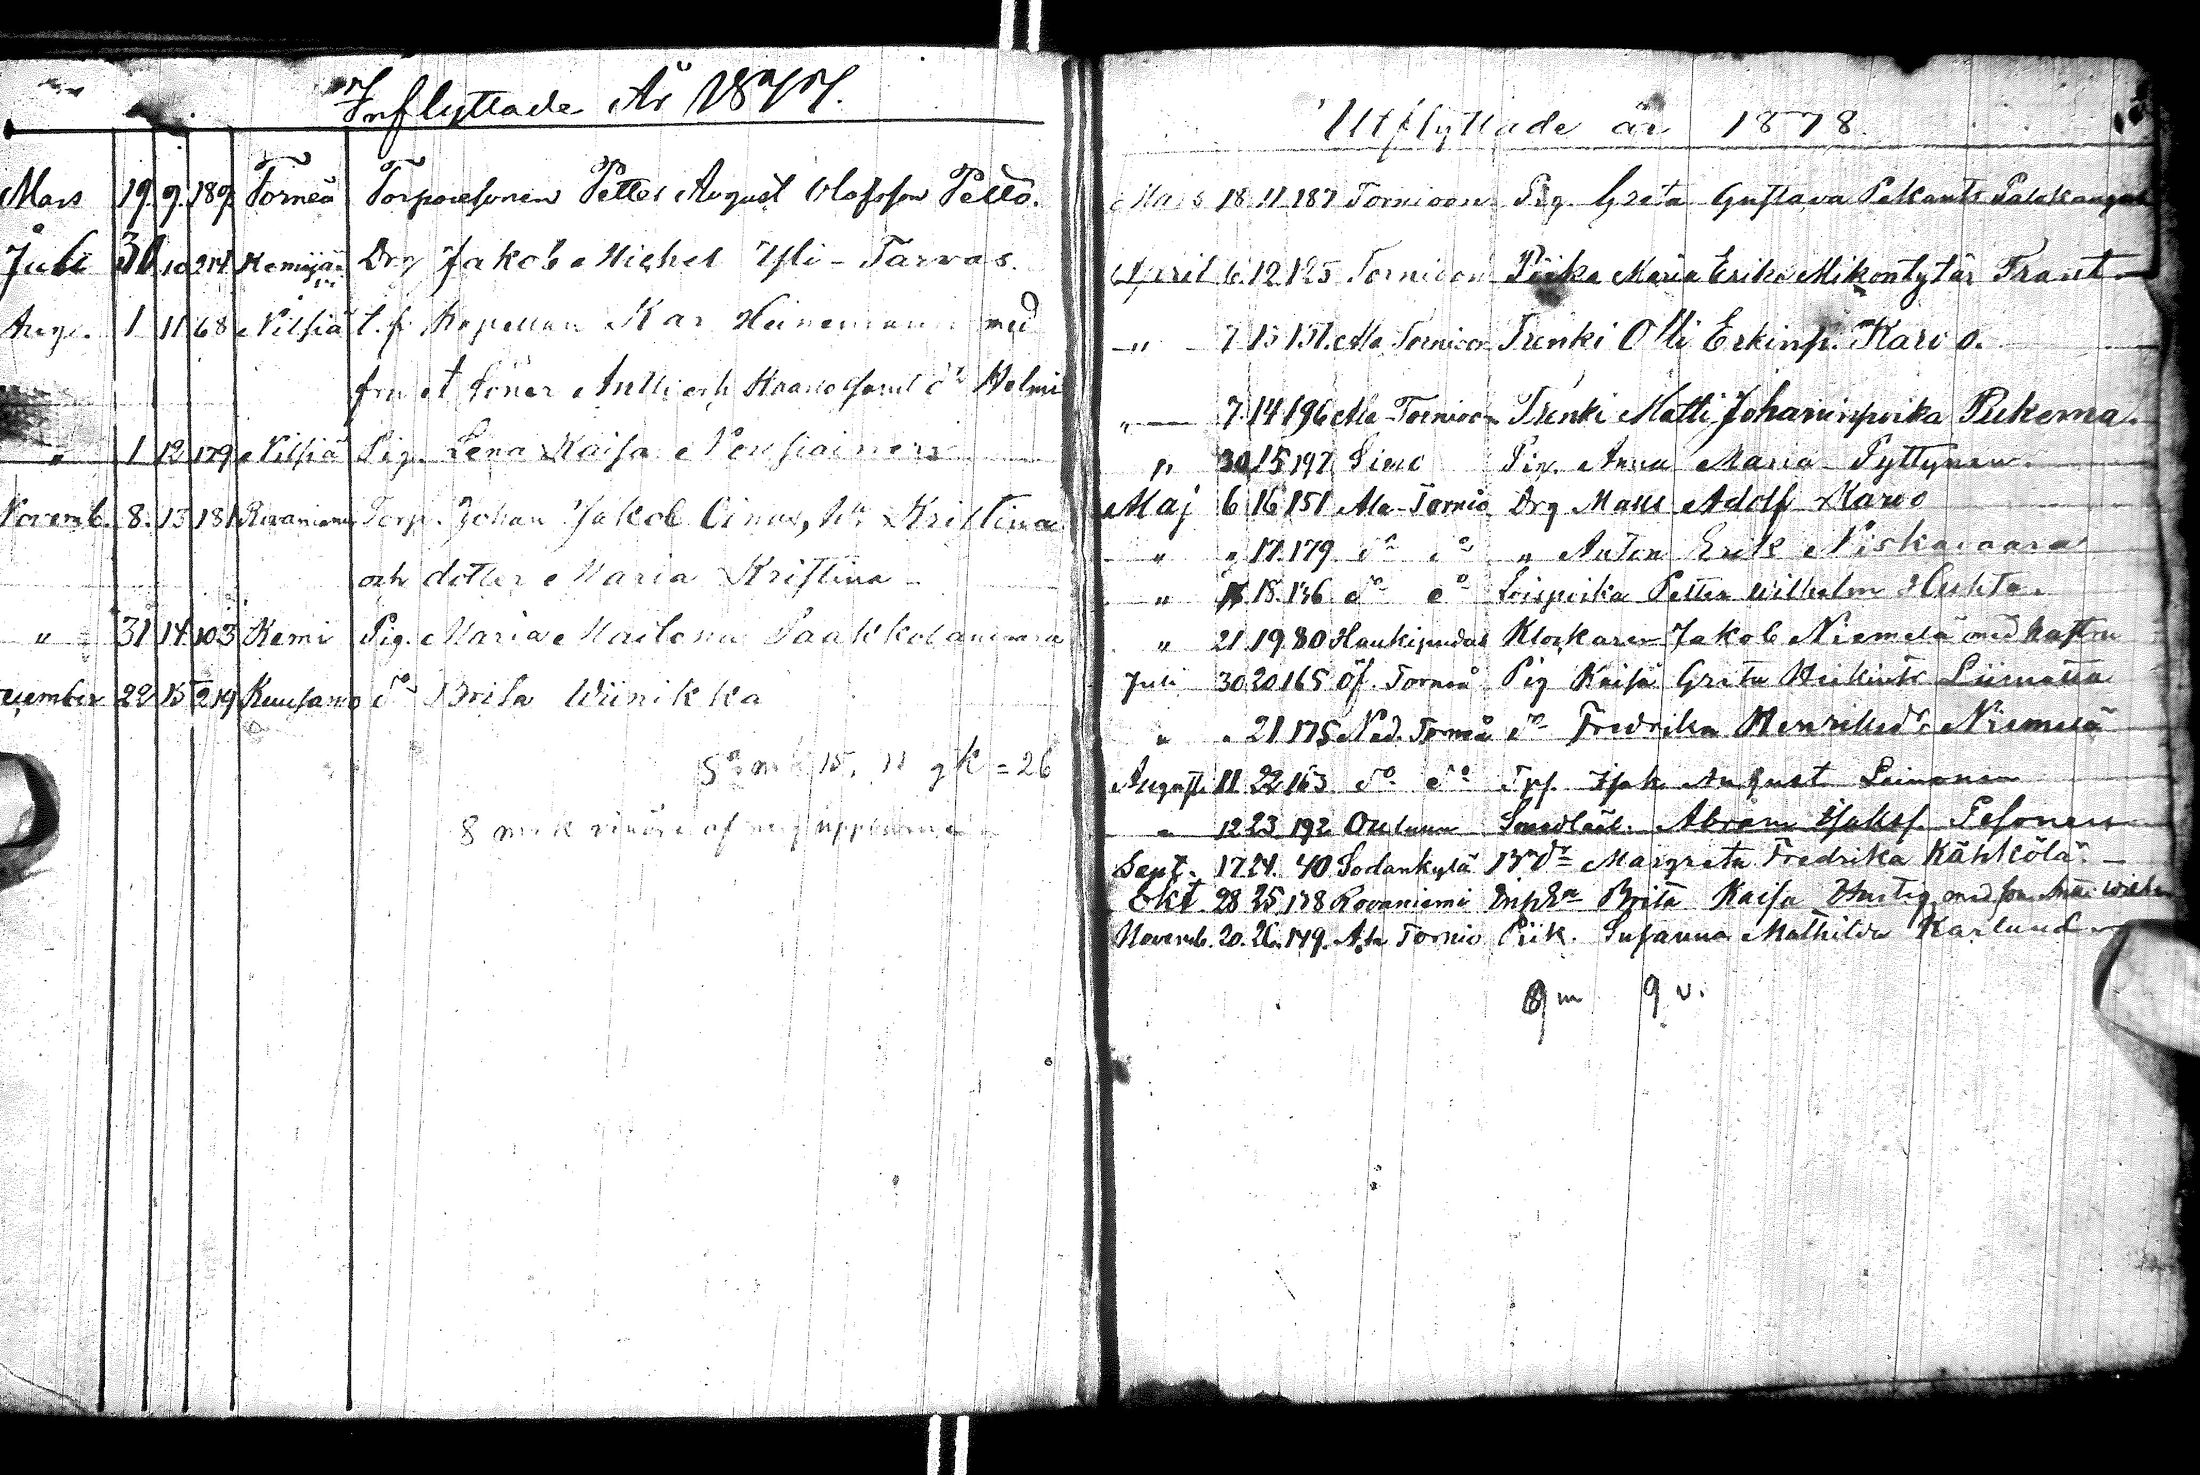 Inflyttade År 1877.
Mars 19. 9. 189. Torneå Torparesonen Petter August Olofsson Pello.
Juli 31 10 214 Kemijär Drg Jakob Michel Yli-Tarvas.
Aug. 1 11 68 Nilsiä t.f. Kapellan Kar Heineman med
fru söner Antti och samt dr Helmi
" 1 12 179 Nilsiä Pig. Lena Kaisa Nousiainen
Novemb. 8. 13 181 Rovaniemi Torp. Johan Jakob hu Kristina
och dotter Maria Kristina
" 31 14 103 Kemi Pig. Maria
cember 22 15 219 Kuusamo do Brita Wiinikka
15, 11 qk = 26
8
Utflyttade år 1878
Mars 18. 11. 187 Tornioon Pig. Greta Gustava Pekants
April 6. 12. 125 Tornioon Piika Maria Erika Mikontytär Frant
" 7 13 151. Ala Tornioon Trenki Olli Erkinp. Karvo.
" 7. 14 196 Ala-Tornioon Trenki Matti Johaninpoika Pukema.
" 30 15 197 Simo Pig. Anna Maria Pyttynen.
Maj 6 16 151 Ala-Tornio Drg Mats Adolf Karvo
" " 17. 179 do do " Anton Erik Niskavaara
" 18. 136 do do Petter Wilhelm Huhta.
" 21 19. 80 Haukipudas Klockaren Jakob Niemelä med hustru
Juli 30 20 165 Öf. Torneå Pig Kaisa Greta Heikints Liimatta
" " 21 175 Ned. Torneå do Fredrika Henriksdr Niemelä
August. 11. 22 163 do do Isak August Leinonen
" 12 23 192 Ouluun Abram Isaksf. Pesonen
Sept. 17 24. 40 Sodankylä Margreta Fredrika Kähkölä. —
Okt. 28 25 178 Rovaniemi Brita Kaisa med son
Novemb. 20. 26. 149. Ala Tornio Piik. Susanna Mathilda Karlund
m 9 v.